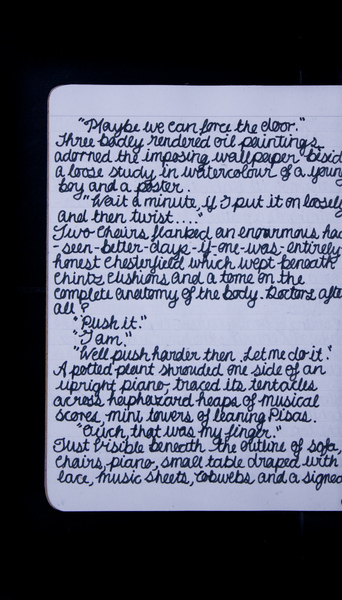 "Maybe we can force the door."
Three badly rendered oil paintings
adorned the imposing wallpaper besid
a loose study in watercolour of a young
boy and a poster.
"Wait a minute, if I put it on loosely
and then twist...."
Two chairs flanked an enormous, had
-seen-better-days-if-one-was-entirely
honest chesterfield which wept beneath
chintz cushions and a tome on the
complete anatomy of the body. Doctors after
all?
"Push it."
"I am."
"Well push harder then. Let me do it."
A potted plant shrouded one side of an
upright piano, traced its tentacles
across haphazard heaps of musical
scores, mini towers of leaning Pisas.
"Ouch, that was my finger."
Just visible beneath the outline of sofa,
chairs, piano, small table draped with
lace, music sheets, cobwebs and a signed